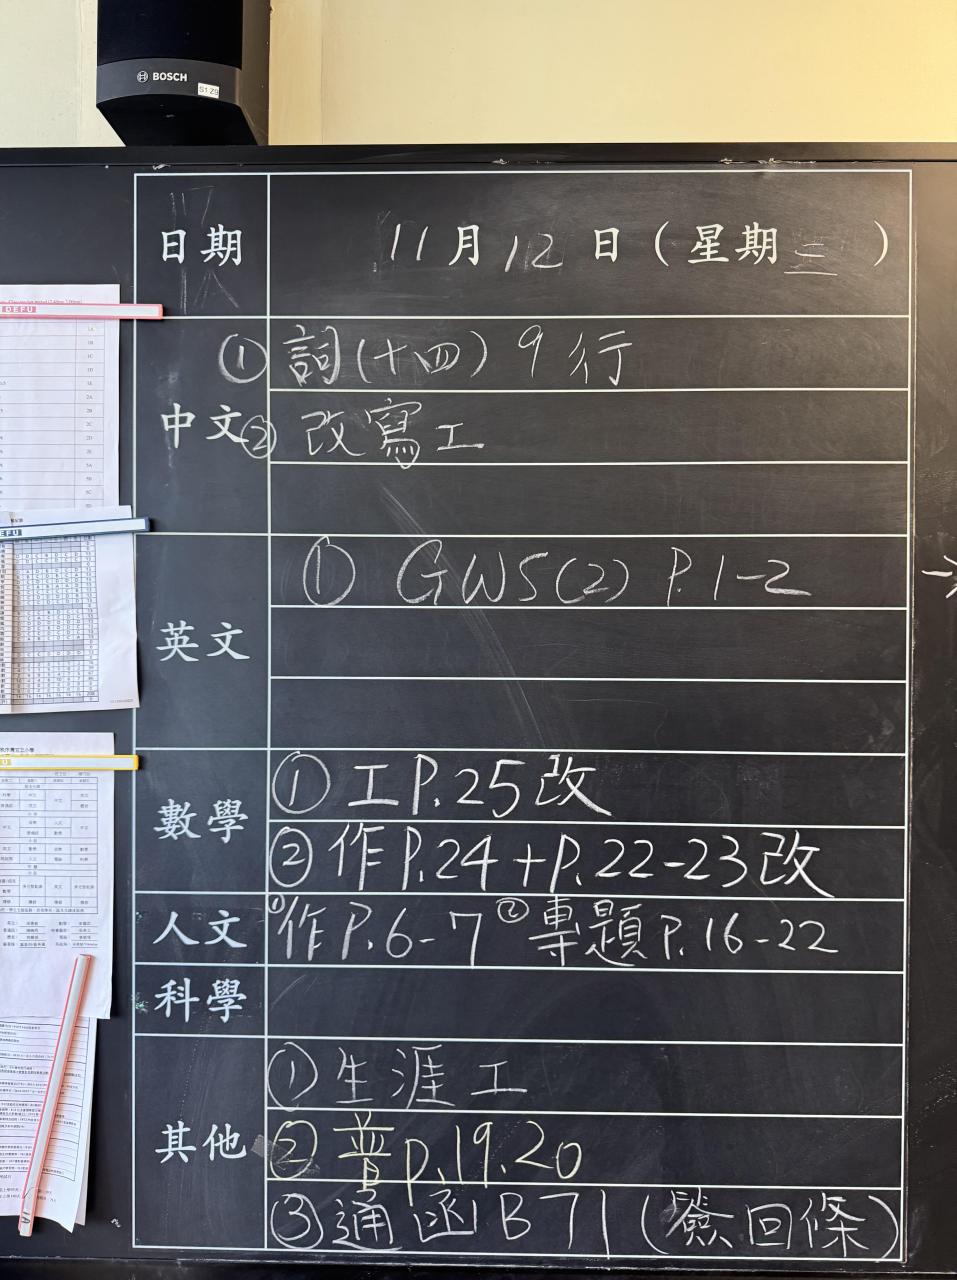 BOSCH
S1 Z9
日期 11月12日(星期三)
中文
① 詞(十四) 9行
② 改寫工
英文
① GWS(2) P.1-2
數學
① 工P.25改
② 作P.24+P.22-23改
人文 ①作P.6-7 ②專題P.16-22
科學
其他
① 生涯工
② 普p.19.20
③ 通函B71(簽回條)
DEFU